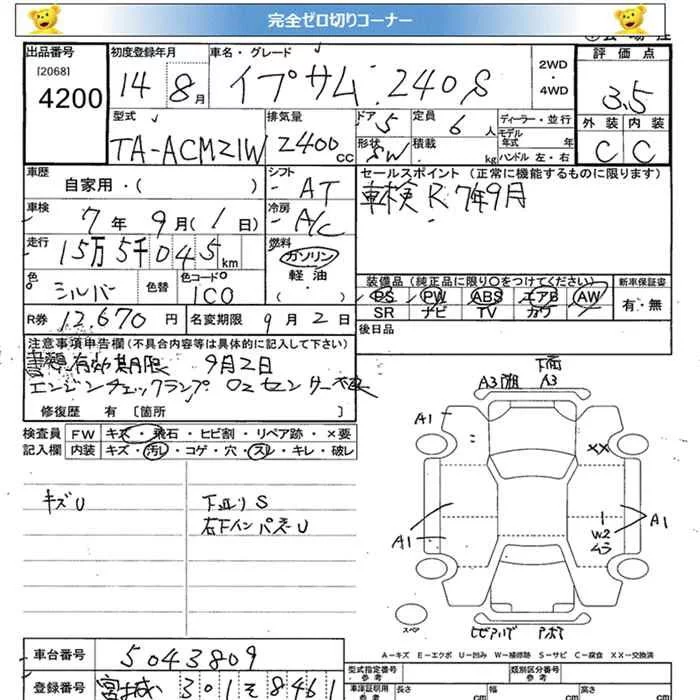 完全ゼロ切りコーナー
出品番号 初度登録年月 車名・グレード 評価点
[2068]
4200 14 8月 イプサム 240S 2WD・4WD 3.5
型式 排気量 ドア 5 定員 6人 ディーラー・並行 外装 内装
TA-ACM21W 2400cc 形状 SW 積載 kg モデル年式 年 ハンドル 左・右 C C
車歴 自家用・( ) シフト AT セールスポイント (正常に機能するものに限ります)
車検 7年 9月 (1日) 冷房 A/C 車検 R.7年9月
走行 15万5千045km 燃料 ガソリン
軽油・( )
色 シルバー 色替 色コード 1C0
装備品 (純正品に限り○をつけてください) 新車保証書
PS PW ABS エアB AW 有・無
SR ナビ TV カワ
R券 12,670円 名変期限 9月2日 後日品
注意事項申告欄 (不具合内容等は具体的に記入して下さい)
書類有効期限 9月2日
エンジンチェックランプ O2センサー
修復歴 有 [箇所 ]
検査員 FW キズ・飛石・ヒビ割・リペア跡・×要
記入欄 内装 キズ・汚レ・コゲ・穴・スレ・キレ・破レ
キズU 下廻りS
右下インパネU
下面
A3 A3
A1
XX
A1 W2 A1
ムラ
スペア
A-キズ E-エクボ U-凹み W-補修跡 S-サビ C-腐食 XX-交換済
車台番号 5043809
型式指定番号 類別区分番号
参考 参考
登録番号 宮城 301 そ 8461
車体証明用 長さ 幅 高さ
参考 cm cm cm